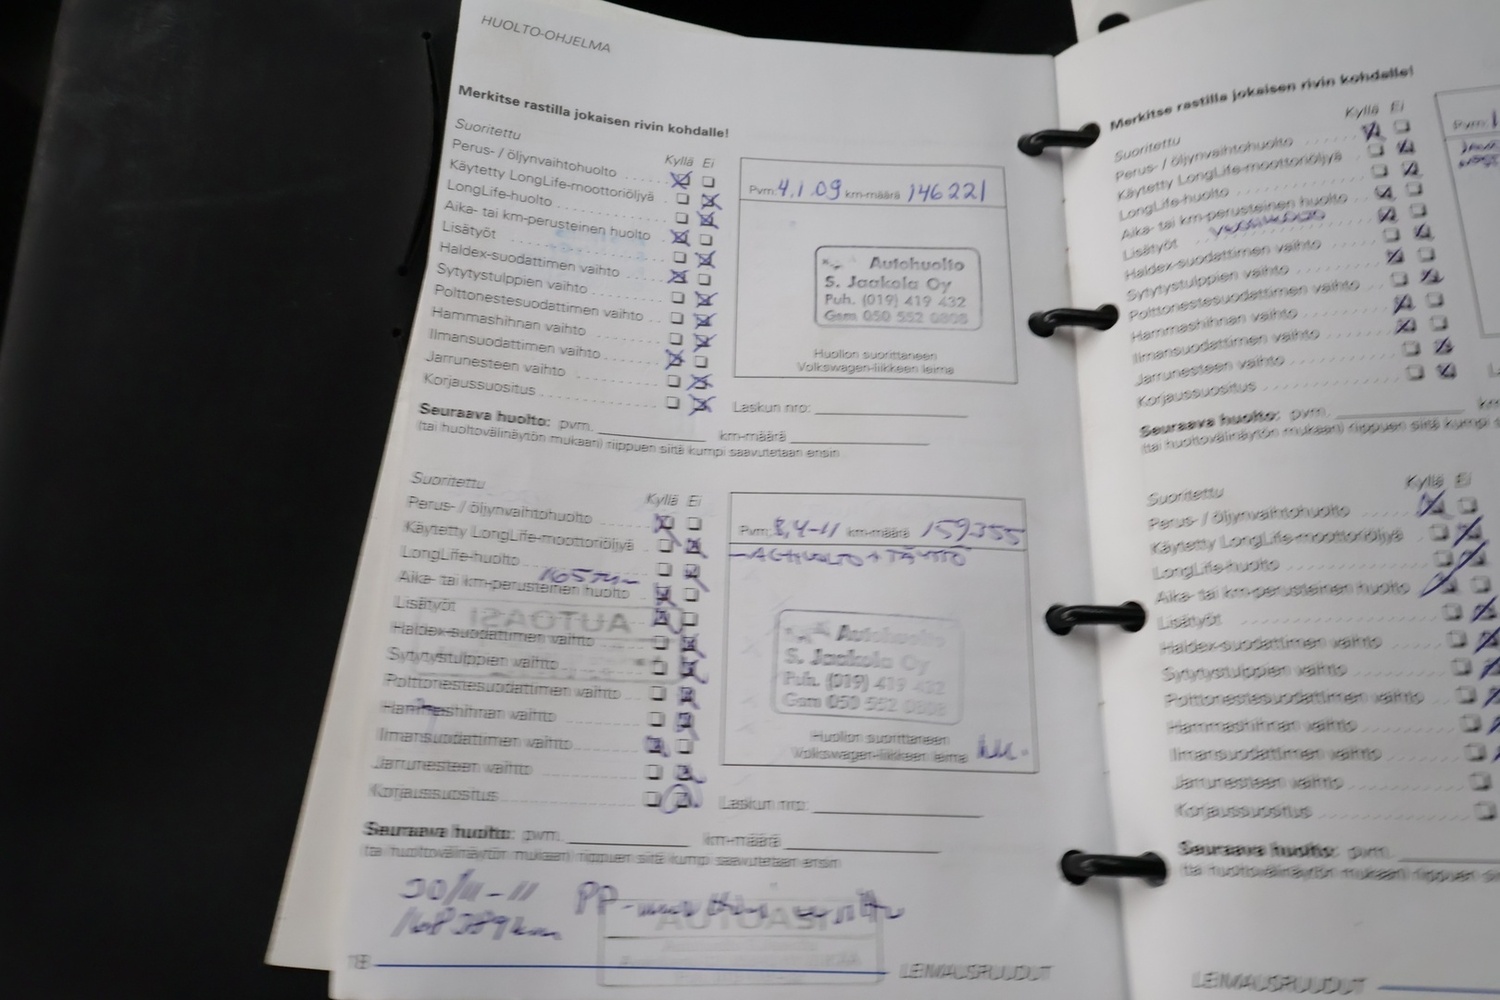 HUOLTO-OHJELMA
Merkitse rastilla jokaisen rivin kohdalle!
Suoritettu
Kyllä Ei
Perus- / öljynvaihtohuolto
Käytetty LongLife-moottoriöljyä
LongLife-huolto
Aika- tai km-perusteinen huolto
Lisätyöt
Haldex-suodattimen vaihto
Sytytystulppien vaihto
Polttonestesuodattimen vaihto
Hammashihnan vaihto
Ilmansuodattimen vaihto
Jarrunesteen vaihto
Korjaussuositus
Pvm. 4.1.09 km-määrä 146221
Autohuolto
S. Jaakola Oy
Puh. (019) 419 432
Gsm 050 552 0808
Huollon suorittaneen
Volkswagen-liikkeen leima
Laskun nro:
Seuraava huolto: pvm. km-määrä
(tai huoltovälinäytön mukaan) riippuen siitä kumpi saavutetaan ensin
Suoritettu
Kyllä Ei
Perus- / öljynvaihtohuolto
Käytetty LongLife-moottoriöljyä
LongLife-huolto
Aika- tai km-perusteinen huolto
Lisätyöt
Haldex-suodattimen vaihto
Sytytystulppien vaihto
Polttonestesuodattimen vaihto
Hammashihnan vaihto
Ilmansuodattimen vaihto
Jarrunesteen vaihto
Korjaussuositus
Pvm. 8,4-11 km-määrä 159355
-ACHUOLTO+TÄYTTÖ
Autohuolto
S. Jaakola Oy
Puh. (019) 419 432
Gsm 050 552 0808
Huollon suorittaneen
Volkswagen-liikkeen leima
Laskun nro:
Seuraava huolto: pvm. km-määrä
(tai huoltovälinäytön mukaan) riippuen siitä kumpi saavutetaan ensin
30/11-11
168389km
18 LEIMAUSRUUDUT
Merkitse rastilla jokaisen rivin kohdalle!
Suoritettu
Kyllä Ei
Perus- / öljynvaihtohuolto
Käytetty LongLife-moottoriöljyä
LongLife-huolto
Aika- tai km-perusteinen huolto
Lisätyöt
Haldex-suodattimen vaihto
Sytytystulppien vaihto
Polttonestesuodattimen vaihto
Hammashihnan vaihto
Ilmansuodattimen vaihto
Jarrunesteen vaihto
Korjaussuositus
Pvm.
Seuraava huolto: pvm.
(tai huoltovälinäytön mukaan) riippuen siitä kumpi
Suoritettu
Kyllä Ei
Perus- / öljynvaihtohuolto
Käytetty LongLife-moottoriöljyä
LongLife-huolto
Aika- tai km-perusteinen huolto
Lisätyöt
Haldex-suodattimen vaihto
Sytytystulppien vaihto
Polttonestesuodattimen vaihto
Hammashihnan vaihto
Ilmansuodattimen vaihto
Jarrunesteen vaihto
Korjaussuositus
Seuraava huolto: pvm.
(tai huoltovälinäytön mukaan) riippuen siitä kumpi
LEIMAUSRUUDUT